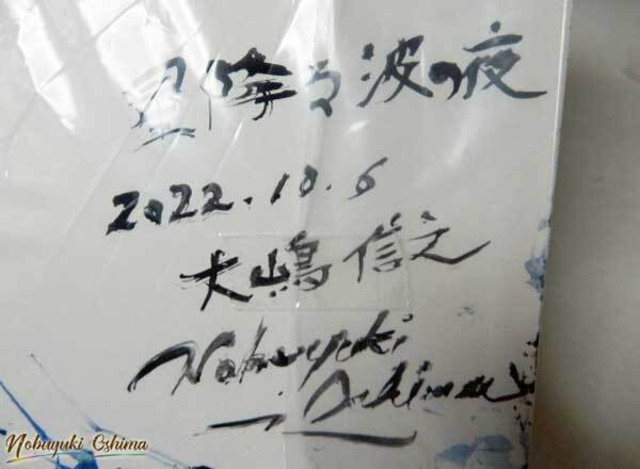 星降る波の夜
2022.10.6
大嶋信之
Nobuyuki
Oshima
Nobuyuki Oshima